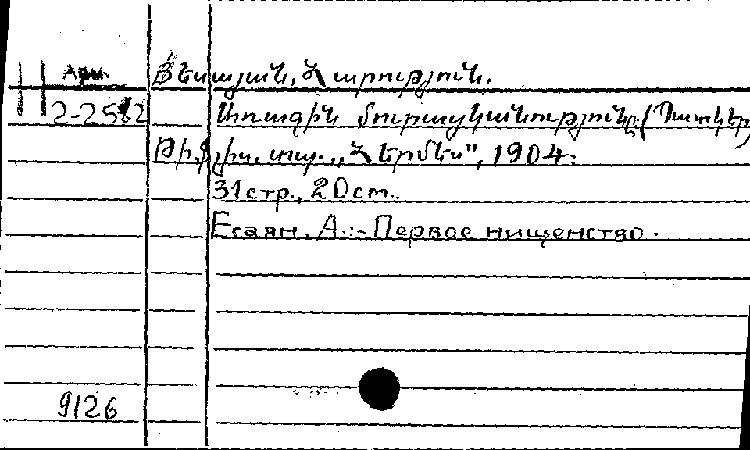 Арм.
Եսայան, Հարություն.
2-2512
Առաջին մուրացկանությունը (Պատկեր)
Թիֆլիս, տպ. „Հերմես", 1904.
31стр., 20cm.
Есаян, А.:-Первое нищенство.
9126